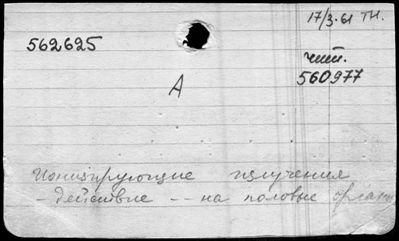 17/3-61 ТН.
562625
чит.
560977
А
Ионизирующие излучения
- действие -- на половые органы